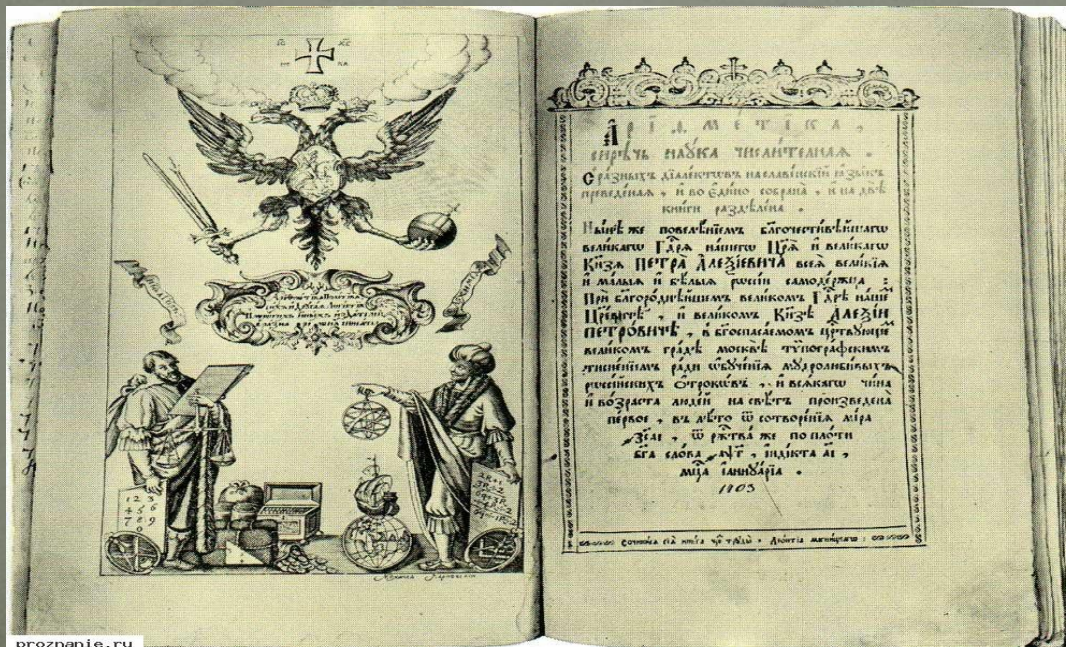 1 2 3
4 5 6
7 8 9
0
А҆рїѳме́тїка,
сирѣ́чь наꙋ́ка числи́телная.
С ра́зныхъ дїале́ктѡвъ на славе́нскїй ꙗ҆зы́къ
преведе́ная, и҆ во є҆ди́но собрана̀, и҆ на двѣ̀
кни̑ги раздѣле́на.
Ны́нѣ же повелѣ́нїемъ бл҃гочести́вѣйшагѡ
вели́кагѡ Гдⷭ҇рѧ на́шегѡ Цр҃ѧ̀ и҆ вели́кагѡ
Кн҃зѧ ПЕТРА̀ А҆ЛЕѮІ́ЕВИЧА всеѧ̀ вели́кїѧ
и҆ ма́лыѧ и҆ бѣ́лыѧ рѡссі́и самоде́ржца:
При бл҃горо́днѣйшемъ вели́комъ Гдⷭ҇рѣ на́шемъ
Цр҃е́вичѣ, и҆ вели́комъ Кн҃зѣ А҆ЛЕѮІ́И
ПЕТРО́ВИЧѢ, в бг҃оспаса́емомъ црⷭ҇твꙋющемъ
вели́комъ гра́дѣ москвѣ̀ тѷпогра́фскимъ
тисне́нїемъ ра́ди ѡ҆бꙋче́нїѧ мꙋдролюби́выхъ
рѡссі́йскихъ ѻ҆́трокѡвъ, и҆ всѧ́кагѡ чи́на
и҆ во́зраста люде́й на свѣ́тъ произведена̀
пе́рвое, въ лѣ́то ѿ сотворе́нїѧ мі́ра
҂зсаі, ѿ ржⷭ҇тва̀ же по пло́ти
бг҃а сло́ва ҂аѱг, і҆нді́кта аі,
мцⷭ҇а і҆аннꙋа́рїа.
1703
Сочини́сѧ сїѧ̀ кни́га чрⷥ трꙋды̀ Лео́нтїа магни́цкагѡ:
proznanie.ru